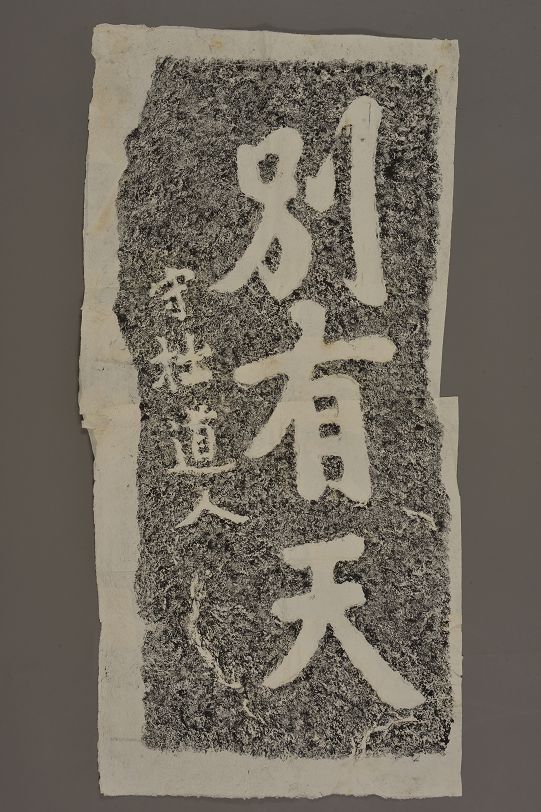 別有天
守拙道人